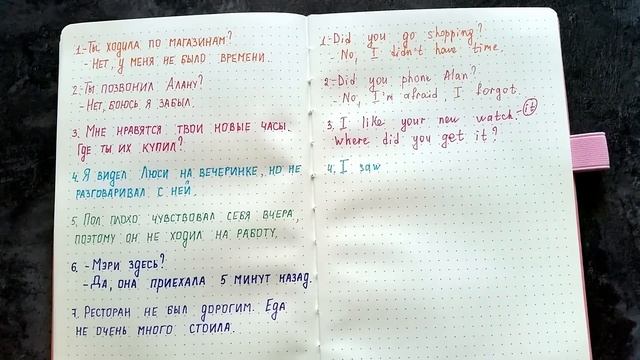 1.-Ты ходила по магазинам?
- Нет, у меня не было времени.
2.-Ты позвонил Алану?
- Нет, боюсь я забыл.
3. Мне нравятся твои новые часы.
Где ты их купил?
4. Я видел Люси на вечеринке, но не
разговаривал с ней.
5. Пол плохо чувствовал себя вчера,
поэтому он не ходил на работу.
6. - Мэри здесь?
- Да, она приехала 5 минут назад.
7. Ресторан не был дорогим. Еда
не очень много стоила.
1.-Did you go shopping?
- No, I didn't have time.
2.-Did you phone Alan?
- No, I'm afraid, I forgot.
3. I like your new watch-it
Where did you get it?
4. I saw